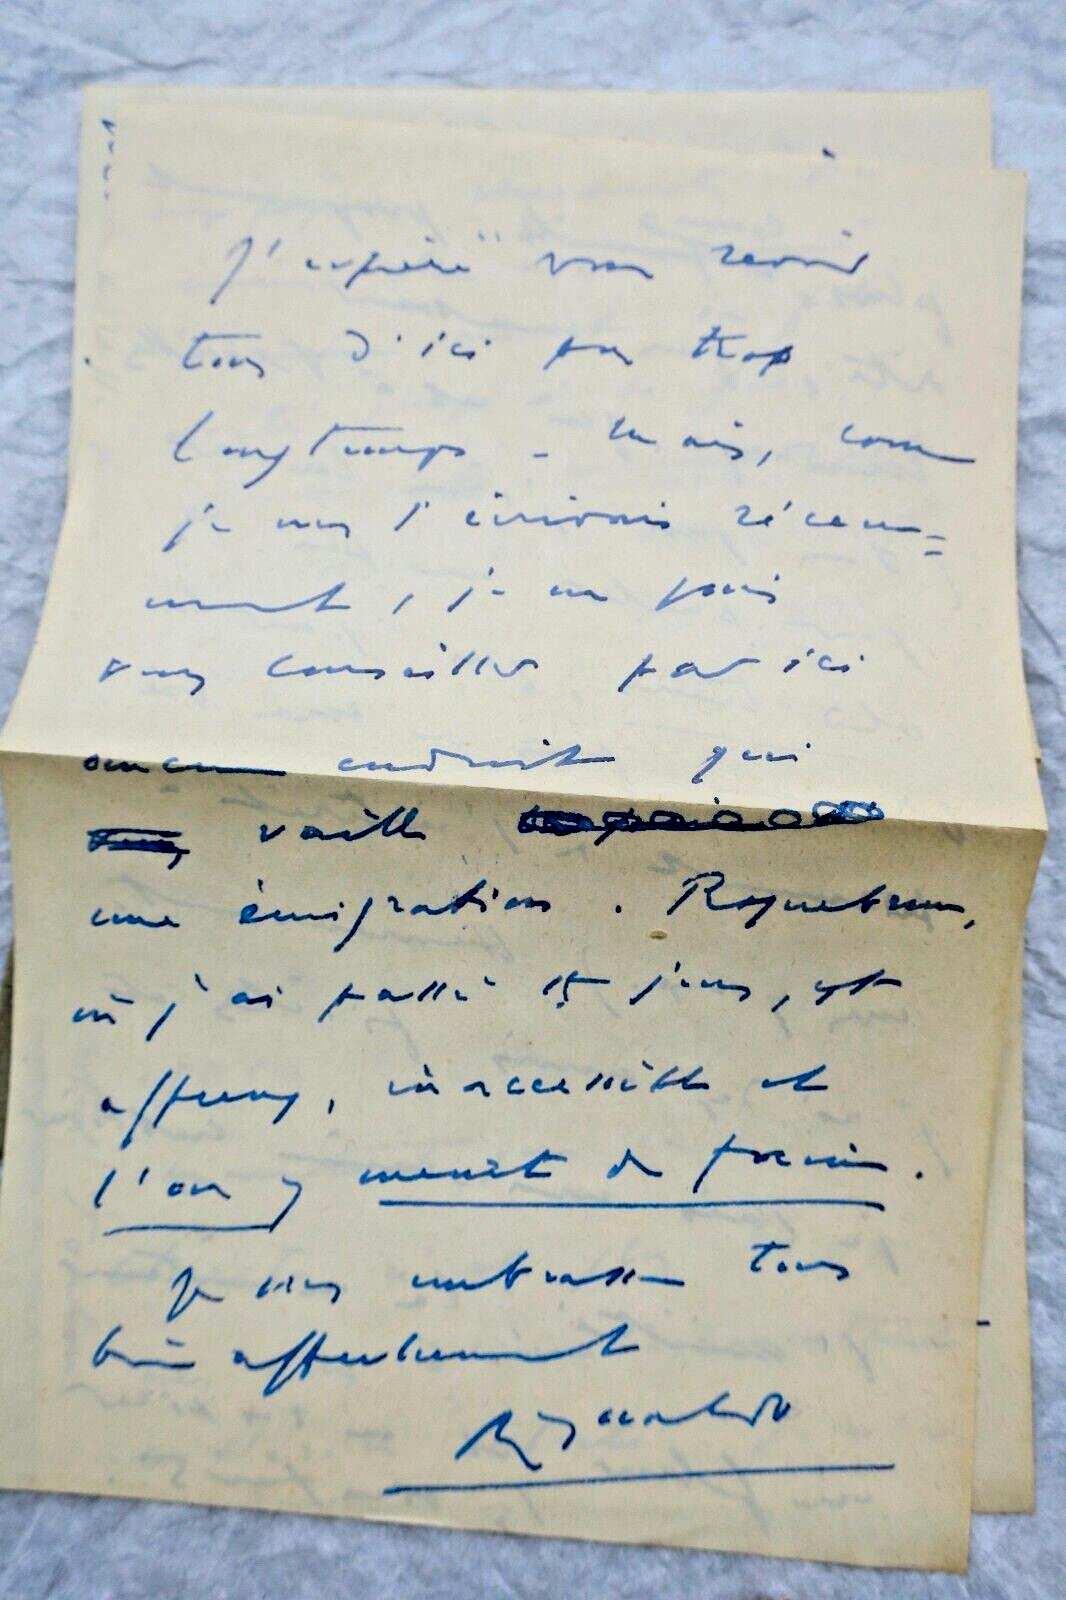 J'espère vous revoir
tous d'ici pas trop
longtemps - Mais, comme
je vous l'écrivais récem=
ment, je ne puis
vous conseiller par ici
aucun endroit qui
vaille
une émigration. Roquebrune,
où j'ai passé 15 jours, est
affreux, inaccessible et
l'on y meurt de faim.
Je vous embrasse tous
bien affectueusement